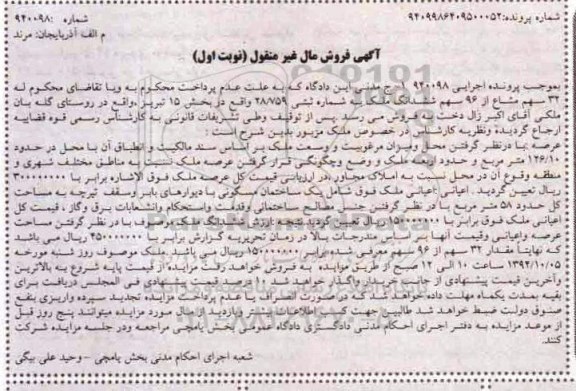 شماره پرونده:۹۴۰۹۹۸۶۴۰۹۵۰۰۰۵۲ شماره :۹۴۰۰۹۸
م الف آذربایجان: مرند
آگهی فروش مال غیر منقول (نوبت اول)
بموجب پرونده اجرایی ۹۴۰۰۹۸ مدنی این دادگاه که به علت عدم پرداخت محکوم به وبا تقاضای محکوم له
۳۲ سهم مشاع از ۹۶ سهم ششدانگ ملک به شماره ثبتی ۲۸/۷۵۹ واقع در بخش ۱۵ تبریز ،واقع در روستای گله بان
ملکی آقای اکبر زال دخت به فروش می رسد پس از توقیف وطی تشریفات قانونی به کارشناس رسمی قوه قضاییه
ارجاع گردیده ونظریه کارشناس در خصوص ملک مزبور بدین شرح است :
عرصه :با درنظر گرفتن محل ومیزان مرغوبیت ووسعت ملک بر اساس سند مالکیت و انطباق آن با محل در حدود
۱۲۶/۱۰ متر مربع و حدود اربعه ملک و وضع وچگونگی قرار گرفتن عرصه ملک نسبت به مناطق مختلف شهری و
منطقه وقوع آن در محل نسبت به املاک مجاور ،در ارزیابی قیمت کل عرصه ملک فوق الاشاره برابر با ۳۰۰۰۰۰۰۰۰
ریال تعیین گردید . اعیانی :اعیانی ملک فوق شامل یک ساختمان مسکونی با دیوارهای باربر وسقف تیرچه به مساحت
کل حدود ۵۸ متر مربع با در نظر گرفتن جنس مصالح ساختمانی وقدمت واستحکام وانشعابات برق و گاز ، قیمت کل
اعیانی ملک فوق برابر با ۱۵۰۰۰۰۰۰۰ ریال تعیین گردید نتیجه: ارزش ششدانگ ملک موصوف با در نظر گرفتن مساحت
عرصه واعیانی وقیمت آنها بنر اساس مندرجات بالا در زمان تحریر گزارش برابر با ۴۵۰۰۰۰۰۰۰ ریال می باشد
که نهایتا مقدار ۳۲ سهم از ۹۶ سهم معرفی شده برابر ۱۵۰۰۰۰۰۰۰ ریال می باشد. ملک موصوف روز شنبه مورخه
۱۳۹۴/۱۰/۰۵ ساعت ۱۰ الی ۱۲ صبح از طریق مزایده به فروش خواهد رفت مزایده از قیمت پایه شروع به بالاترین
وآخرین قیمت پیشنهادی از جانب خریدار واگذار خواهد شد فی المجلس دریافت برای
بقیه بمدت یکماه مهلت داده خواهد شد که در صورت انصراف یا عدم پرداخت مزایده تجدید سپرده واریزی بنفع
صندوق دولت ضبط خواهد شد طالبین جهت کسب اطلاعات بیشتر وبازدید از مال مورد مزایده میتوانند پنج روز قبل
از موعد مزایده به دفتر اجرای احکام مدنی دادگستری دادگاه عمومی بخش یامچی مراجعه ودر جلسه مزایده شرکت
کنند.
شعبه اجرای احکام مدنی بخش یامچی - وحید علی بیگی